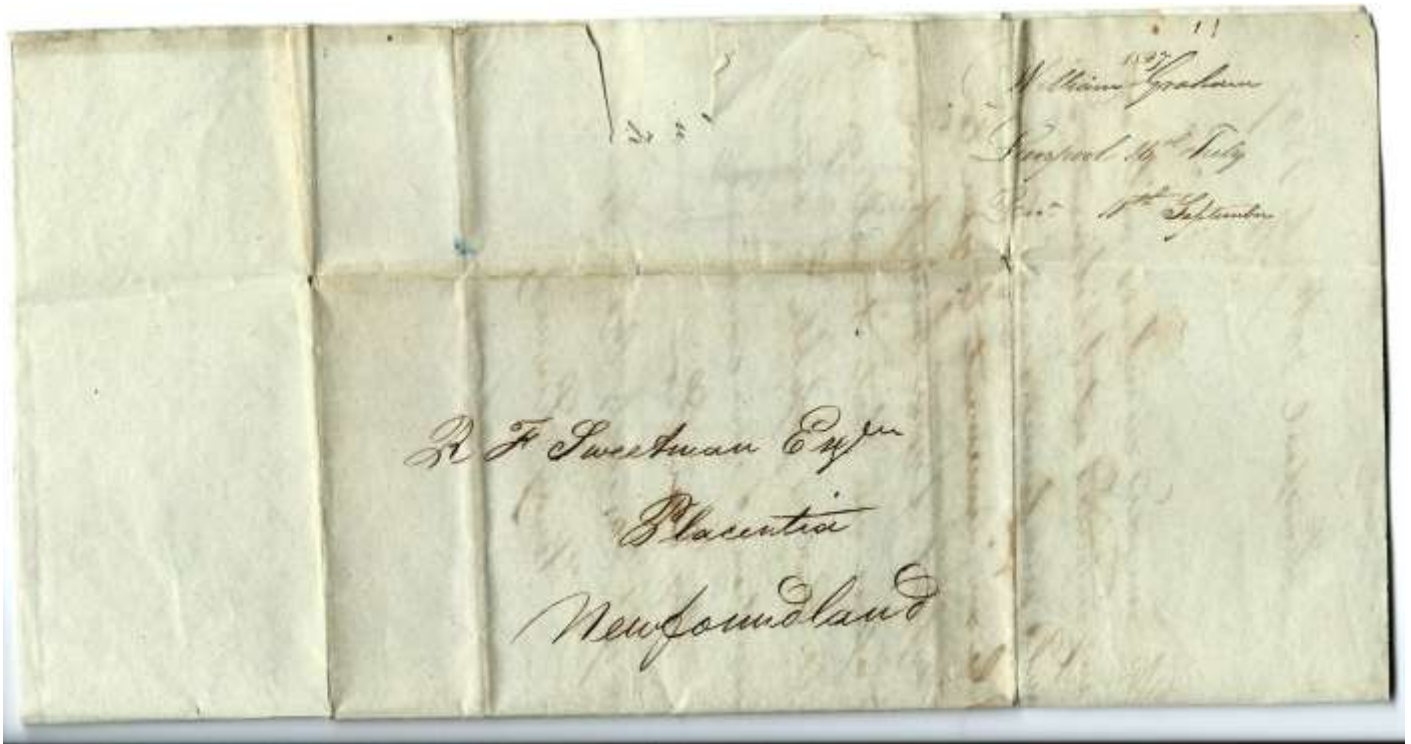 William Graham
Liverpool 16th July
September
R F Sweetman Esqre
Placentia
Newfoundland